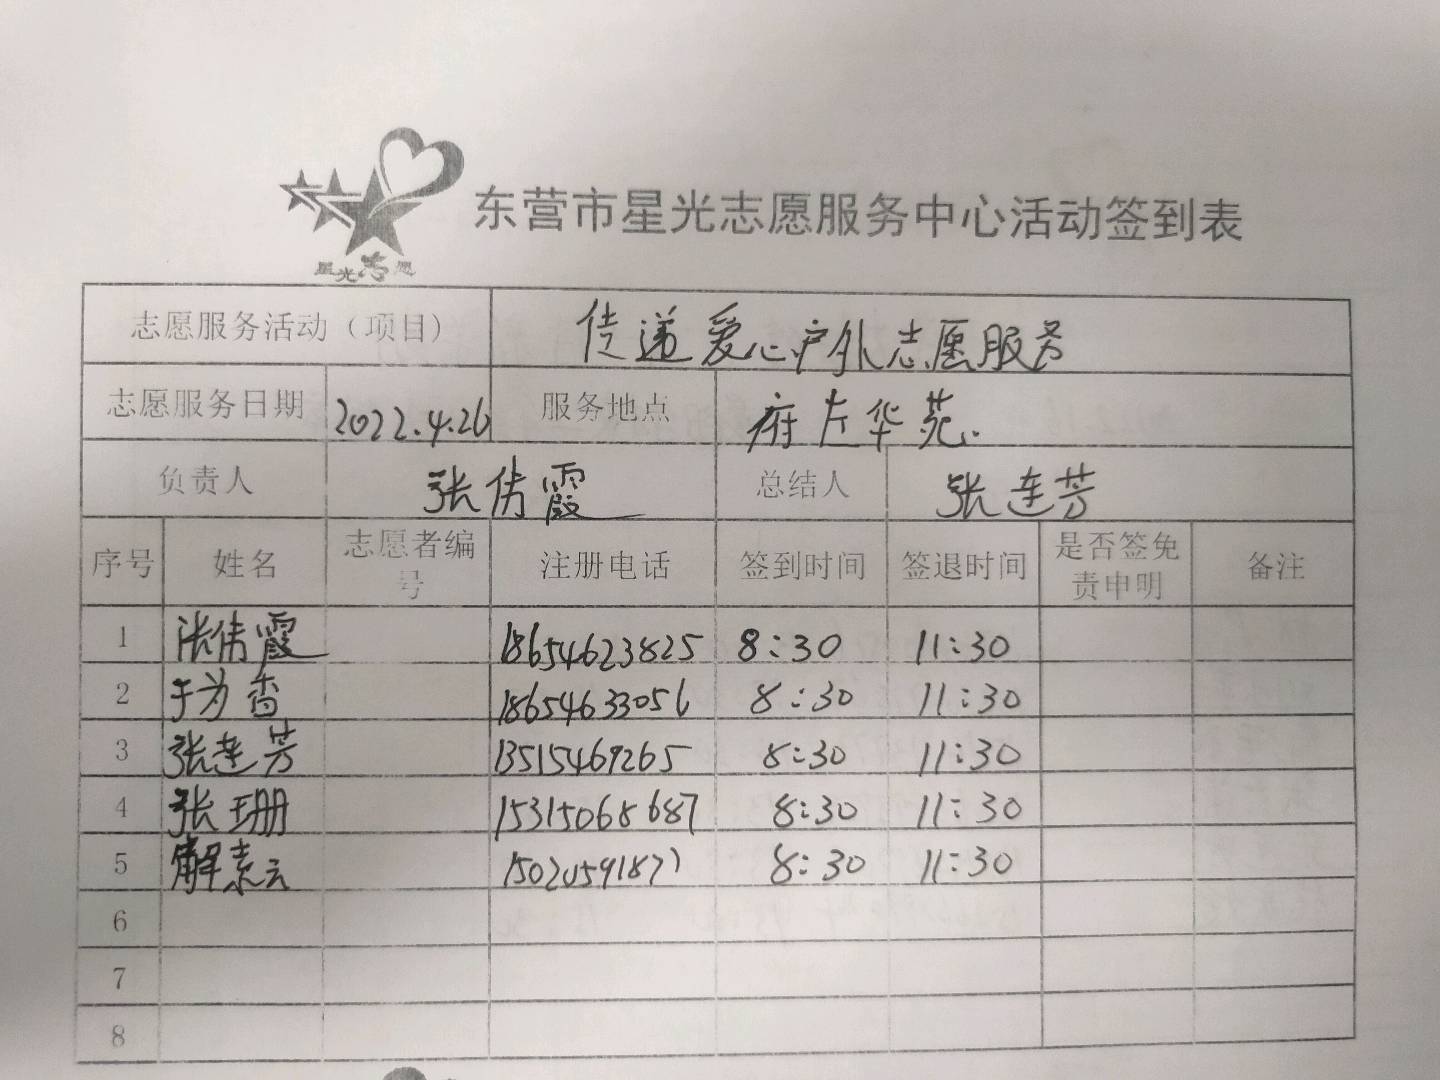 星光志愿
东营市星光志愿服务中心活动签到表
志愿服务活动（项目） 传递爱心户外志愿服务
志愿服务日期 2022.4.26 服务地点 府左华苑.
负责人 张倩霞 总结人 张莲芳
序号 姓名 志愿者编号 注册电话 签到时间 签退时间 是否签免责申明 备注
1 张倩霞 18654623825 8:30 11:30
2 于为香 18654633056 8:30 11:30
3 张莲芳 13515469265 8:30 11:30
4 张珊 15315068687 8:30 11:30
5 解素云 8:30 11:30
6
7
8